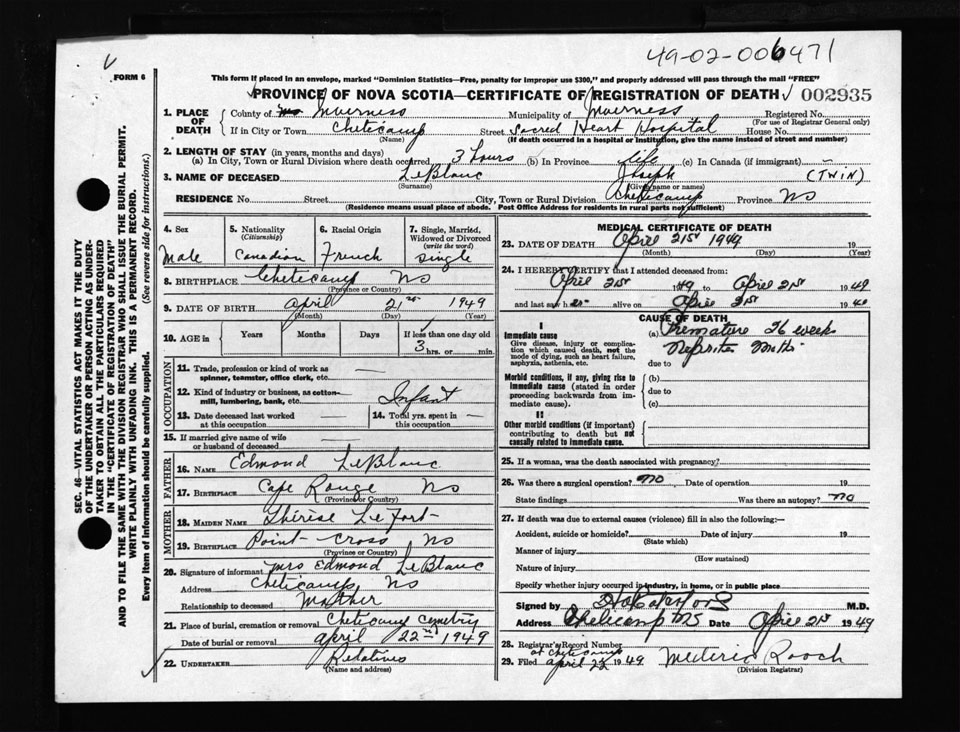 49-02-006471
FORM 6
This form if placed in an envelope, marked "Dominion Statistics—Free, penalty for improper use $300," and properly addressed will pass through the mail "FREE"
PROVINCE OF NOVA SCOTIA—CERTIFICATE OF REGISTRATION OF DEATH 002935
1. PLACE OF DEATH
County of Inverness Municipality of Inverness Registered No.
(For use of Registrar General only)
If in City or Town Cheticamp Street Sacred Heart Hospital House No.
(Name) (If death occurred in a hospital or institution, give the name instead of street and number)
2. LENGTH OF STAY (in years, months and days)
(a) In City, Town or Rural Division where death occurred 3 hours (b) In Province life (c) In Canada (if immigrant)
3. NAME OF DECEASED LeBlanc Joseph (TWIN)
(Surname) (Given name or names)
RESIDENCE No. Street City, Town or Rural Division Cheticamp Province NS
(Residence means usual place of abode. Post Office Address for residents in rural parts not sufficient)
4. Sex
Male
5. Nationality
(Citizenship)
Canadian
6. Racial Origin
French
7. Single, Married,
Widowed or Divorced
(write the word)
Single
8. BIRTHPLACE Cheticamp NS
(Province or Country)
9. DATE OF BIRTH April 21st 1949
(Month) (Day) (Year)
10. AGE in Years Months Days If less than one day old
3 hrs. or min.
OCCUPATION
11. Trade, profession or kind of work as
spinner, teamster, office clerk, etc.
12. Kind of industry or business, as cotton-
mill, lumbering, bank, etc. Infant
13. Date deceased last worked
at this occupation
14. Total yrs. spent in
this occupation
15. If married give name of wife
or husband of deceased
FATHER
16. NAME Edmond LeBlanc
17. BIRTHPLACE Cape Rouge NS
(Province or Country)
MOTHER
18. MAIDEN NAME Thérèse LeFort
19. BIRTHPLACE Point Cross NS
(Province or Country)
20. Signature of informant Mrs Edmond LeBlanc
Address Cheticamp NS
Relationship to deceased Mother
21. Place of burial, cremation or removal Cheticamp Cemetry
Date of burial or removal April 22nd 1949
22. UNDERTAKER Relatives
(Name and address)
MEDICAL CERTIFICATE OF DEATH
23. DATE OF DEATH April 21st 1949 19
(Month) (Day) (Year)
24. I HEREBY CERTIFY that I attended deceased from:
April 21st 1949 to April 21st 1949
and last saw h alive on April 21st 1949
CAUSE OF DEATH
I
Immediate cause
Give disease, injury or complica-
tion which caused death, not the
mode of dying, such as heart failure,
asphyxia, asthenia, etc.
(a) Premature 26 week
due to
Morbid conditions, if any, giving rise to
immediate cause (stated in order
proceeding backwards from im-
mediate cause).
(b)
due to
(c)
II
Other morbid conditions (if important)
contributing to death but not
causally related to immediate cause.
25. If a woman, was the death associated with pregnancy?
26. Was there a surgical operation? no Date of operation 19
State findings Was there an autopsy? no
27. If death was due to external causes (violence) fill in also the following:—
Accident, suicide or homicide? Date of injury 19
(State which)
Manner of injury
(How sustained)
Nature of injury
Specify whether injury occurred in industry, in home, or in public place
Signed by M.D.
Address Cheticamp NS Date April 21st 1949
28. Registrar's Record Number
at Cheticamp
29. Filed April 1949 Mederic Roach
(Division Registrar)
SEC. 46—VITAL STATISTICS ACT MAKES IT THE DUTY
OF THE UNDERTAKER OR PERSON ACTING AS UNDER-
TAKER TO OBTAIN ALL THE PARTICULARS REQUIRED
IN THE "CERTIFICATE OF REGISTRATION OF DEATH"
AND TO FILE THE SAME WITH THE DIVISION REGISTRAR WHO SHALL ISSUE THE BURIAL PERMIT.
WRITE PLAINLY WITH UNFADING INK. THIS IS A PERMANENT RECORD.
Every item of information should be carefully supplied. (See reverse side for instructions.)